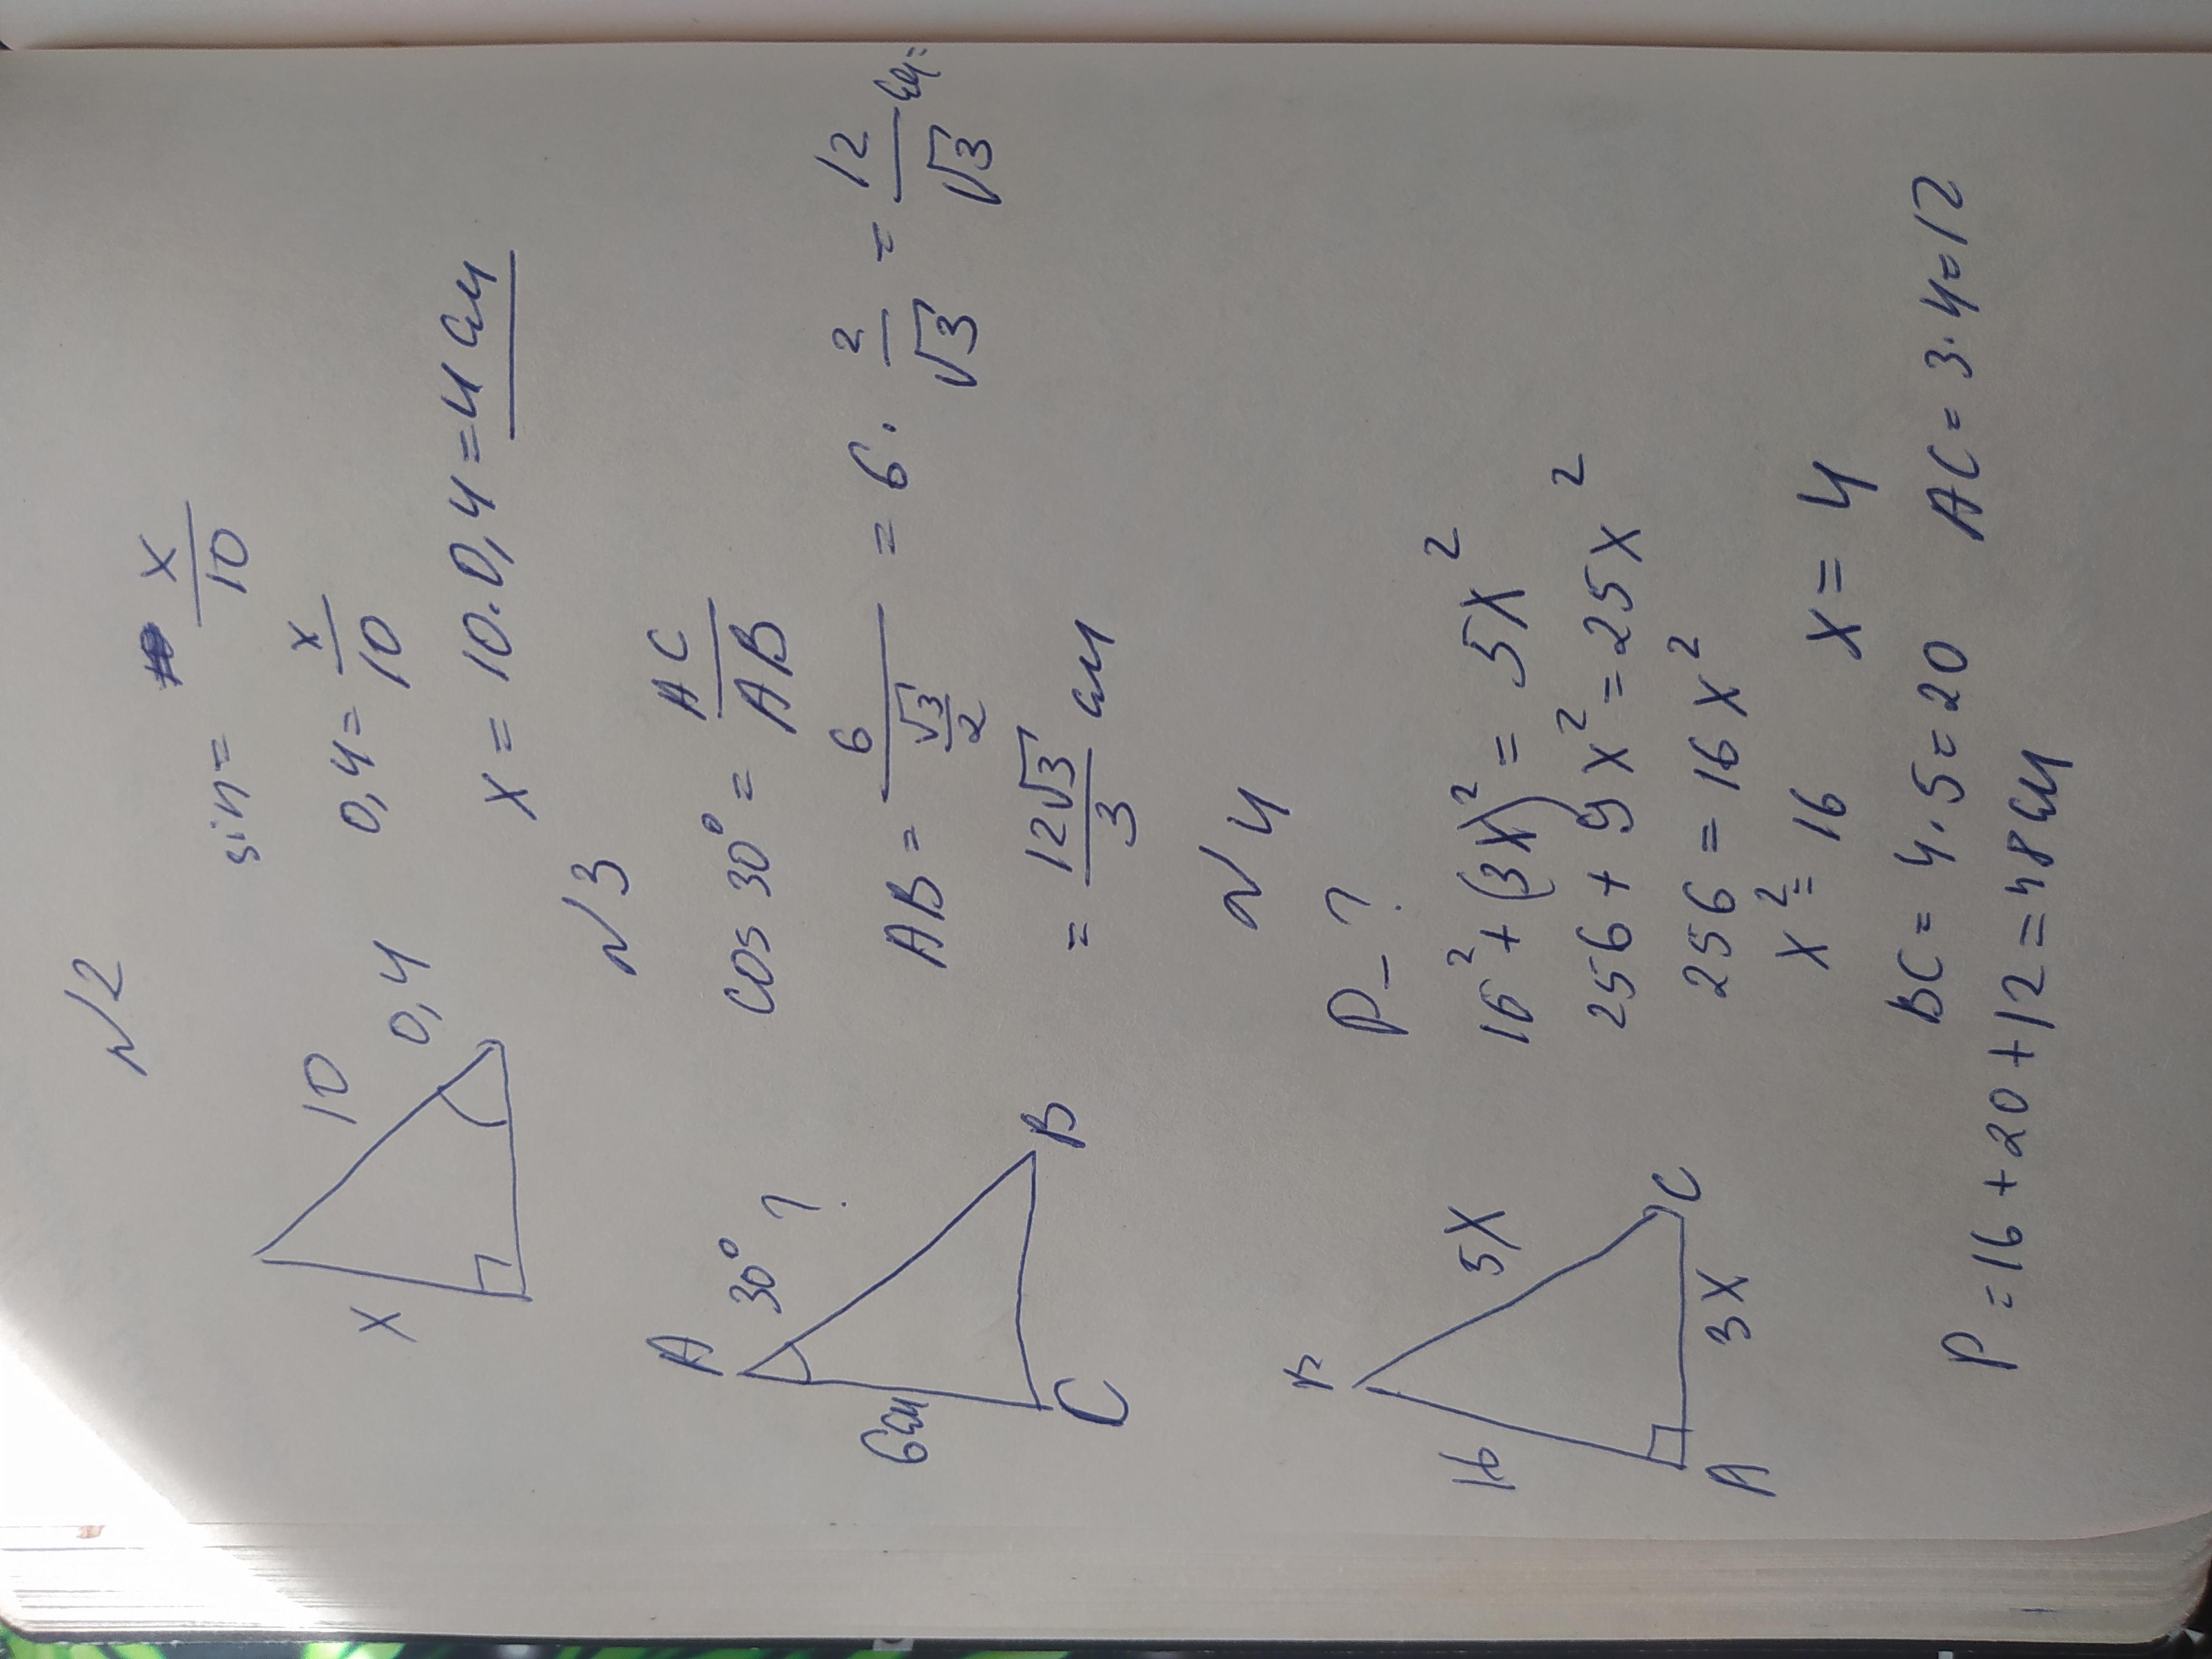 №2
sin = x/10
10
0,4
x
0,4 = x/10
x = 10·0,4 = 4 см
№3
A
30° ?
6см
C
B
cos 30° = AC/AB
AB = 6/(√3/2) = 6·2/√3 = 12/√3 см =
= 12√3/3 см
№4
P_?
B
16
5x
A
3x
C
16² + (3x)² = 5x²
256 + 9x² = 25x²
256 = 16x²
x² = 16 x = 4
BC = 4·5 = 20 AC = 3·4 = 12
P = 16 + 20 + 12 = 48 см